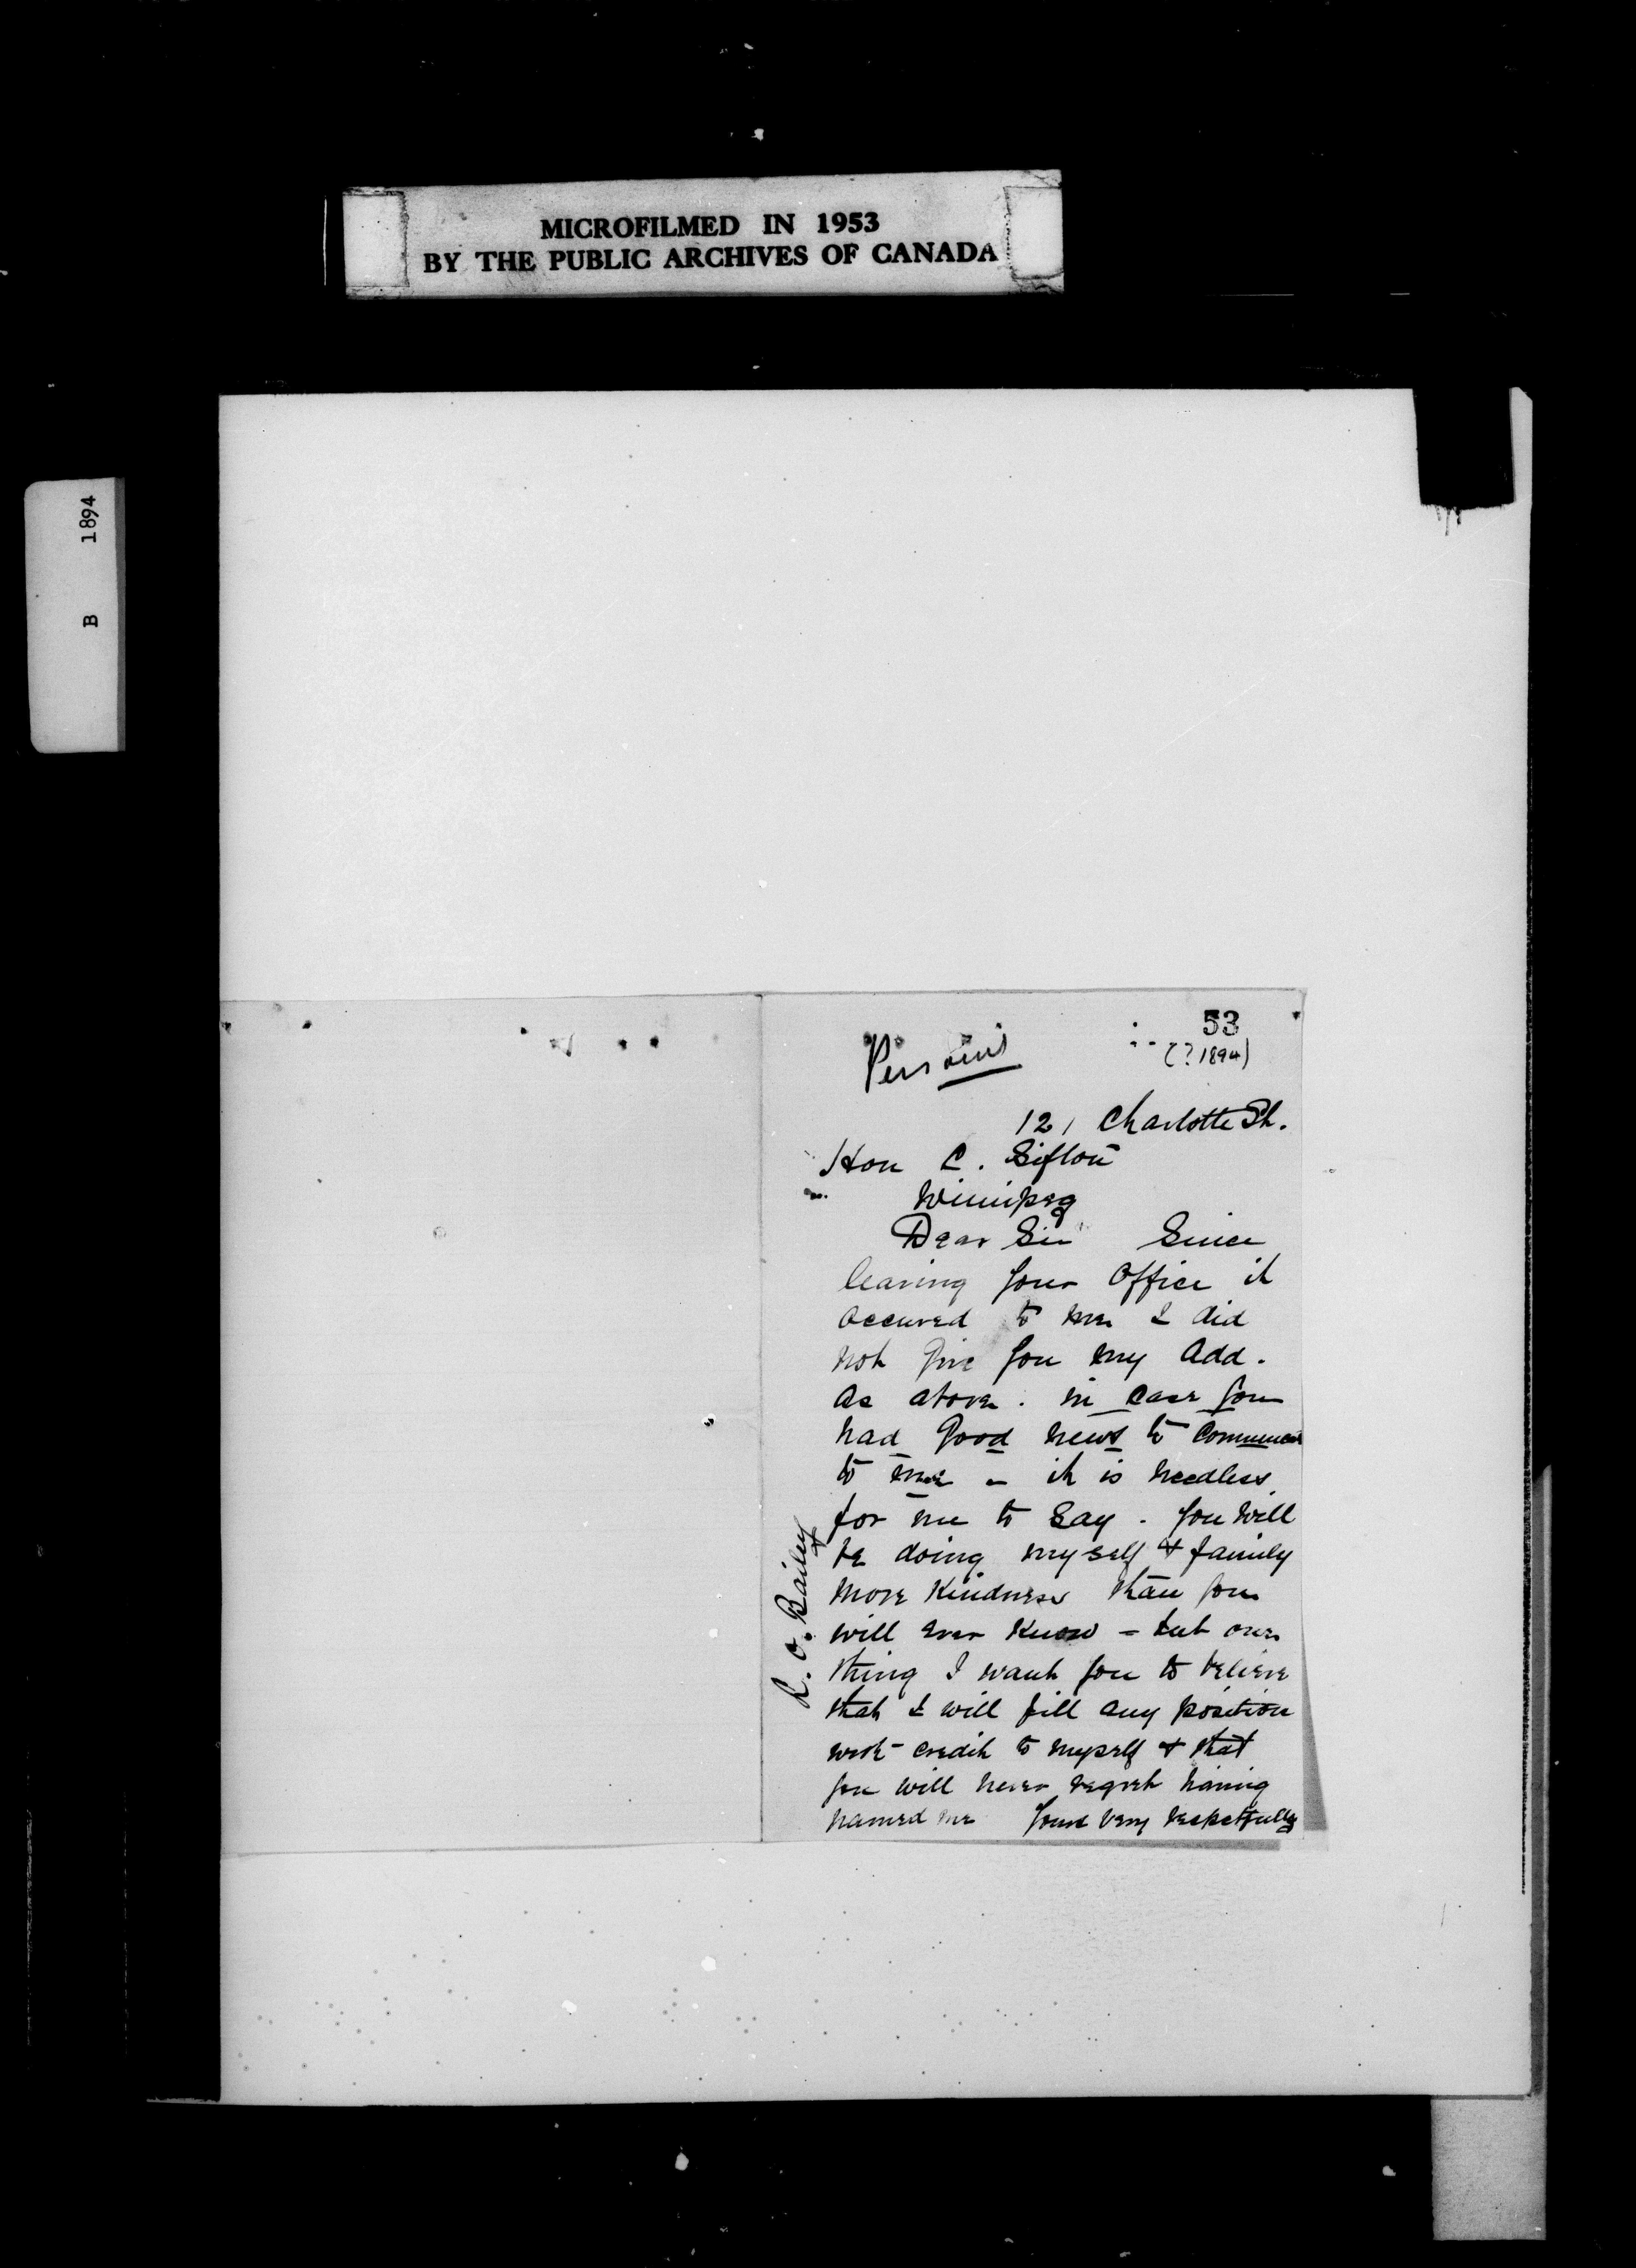 MICROFILMED IN 1953
BY THE PUBLIC ARCHIVES OF CANADA
B 1894
53
(?1894)
121 Charlotte St.
Hon C. Sifton
Winnipeg
Dear Sir Since
leaving your office it
occured to me I did
not give you my add.
as above. in case you
had good news to
to me - it is needless
for me to say. you will
be doing myself & family
more kindness than you
will ever know - but one
thing I want you to believe
that I will fill any position
with credit to myself & that
you will never regret having
named me Yours very respectfully
R. O. Bailey